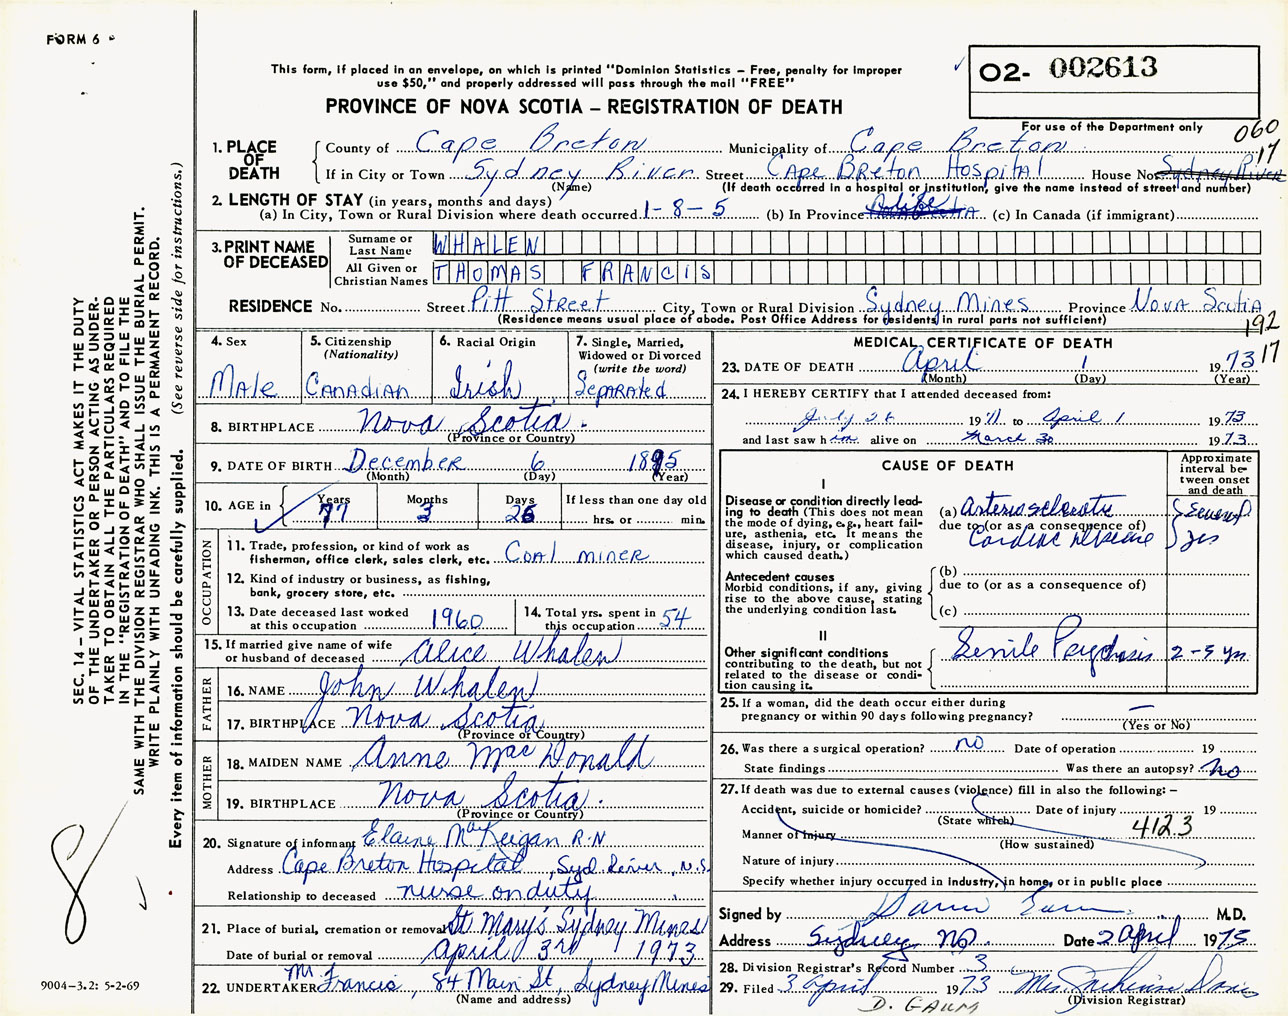 FORM 6
This form, if placed in an envelope, on which is printed "Dominion Statistics – Free, penalty for improper
use $50," and properly addressed will pass through the mail "FREE"
O2- 002613
PROVINCE OF NOVA SCOTIA – REGISTRATION OF DEATH
For use of the Department only
060
17
1. PLACE OF DEATH
County of Cape Breton Municipality of Cape Breton
If in City or Town Sydney River Street Cape Breton Hospital House No. Sydney River
(Name) (If death occurred in a hospital or institution, give the name instead of street and number)
2. LENGTH OF STAY (in years, months and days)
(a) In City, Town or Rural Division where death occurred 1-8-5 (b) In Province (c) In Canada (if immigrant)
3. PRINT NAME OF DECEASED
Surname or Last Name WHALEN
All Given or Christian Names THOMAS FRANCIS
RESIDENCE No. Street Pitt Street City, Town or Rural Division Sydney Mines Province Nova Scotia
(Residence means usual place of abode. Post Office Address for residents in rural parts not sufficient)
192
17
4. Sex Male
5. Citizenship (Nationality) Canadian
6. Racial Origin Irish
7. Single, Married, Widowed or Divorced (write the word) Separated
8. BIRTHPLACE Nova Scotia.
(Province or Country)
9. DATE OF BIRTH December 6 1895
(Month) (Day) (Year)
10. AGE in Years 77 Months 3 Days 26 If less than one day old hrs. or min.
OCCUPATION
11. Trade, profession, or kind of work as
fisherman, office clerk, sales clerk, etc. Coal miner
12. Kind of industry or business, as fishing,
bank, grocery store, etc.
13. Date deceased last worked
at this occupation 1960
14. Total yrs. spent in
this occupation 54
15. If married give name of wife
or husband of deceased Alice Whalen
FATHER
16. NAME John Whalen
17. BIRTHPLACE Nova Scotia
(Province or Country)
MOTHER
18. MAIDEN NAME Anne MacDonald
19. BIRTHPLACE Nova Scotia.
(Province or Country)
20. Signature of informant Elaine McKeigan R.N
Address Cape Breton Hospital, Syd. River, N.S.
Relationship to deceased nurse on duty
21. Place of burial, cremation or removal St Mary's Sydney Mines
Date of burial or removal April 3rd 1973
22. UNDERTAKER Mr. Francis, 84 Main St, Sydney Mines
(Name and address)
MEDICAL CERTIFICATE OF DEATH
23. DATE OF DEATH April 1 1973
(Month) (Day) (Year)
24. I HEREBY CERTIFY that I attended deceased from:
July 26 1971 to April 1 1973
and last saw him alive on March 30 1973
CAUSE OF DEATH
Approximate interval between onset and death
I
Disease or condition directly lead-
ing to death (This does not mean
the mode of dying, e.g., heart fail-
ure, asthenia, etc. It means the
disease, injury, or complication
which caused death.)
(a) Arteriosclerotic
due to (or as a consequence of)
Cardiac disease
Several
yrs
Antecedent causes
Morbid conditions, if any, giving
rise to the above cause, stating
the underlying condition last.
(b)
due to (or as a consequence of)
(c)
II
Other significant conditions
contributing to the death, but not
related to the disease or condi-
tion causing it.
Senile Psychosis 2-5 yrs
25. If a woman, did the death occur either during
pregnancy or within 90 days following pregnancy? –
(Yes or No)
26. Was there a surgical operation? no Date of operation 19
State findings Was there an autopsy? No
27. If death was due to external causes (violence) fill in also the following: –
Accident, suicide or homicide? Date of injury 19
(State which)
4123
Manner of injury
(How sustained)
Nature of injury
Specify whether injury occurred in industry, in home, or in public place
Signed by M.D.
Address Sydney NS. Date 2 April 1973
28. Division Registrar's Record Number 3
29. Filed 3 April 1973 Mrs.
(Division Registrar)
D. GAUM
SEC. 14 – VITAL STATISTICS ACT MAKES IT THE DUTY
OF THE UNDERTAKER OR PERSON ACTING AS UNDER-
TAKER TO OBTAIN ALL THE PARTICULARS REQUIRED
IN THE "REGISTRATION OF DEATH" AND TO FILE THE
SAME WITH THE DIVISION REGISTRAR WHO SHALL ISSUE THE BURIAL PERMIT.
WRITE PLAINLY WITH UNFADING INK. THIS IS A PERMANENT RECORD.
Every item of information should be carefully supplied. (See reverse side for instructions.)
8
9004–3.2: 5-2-69